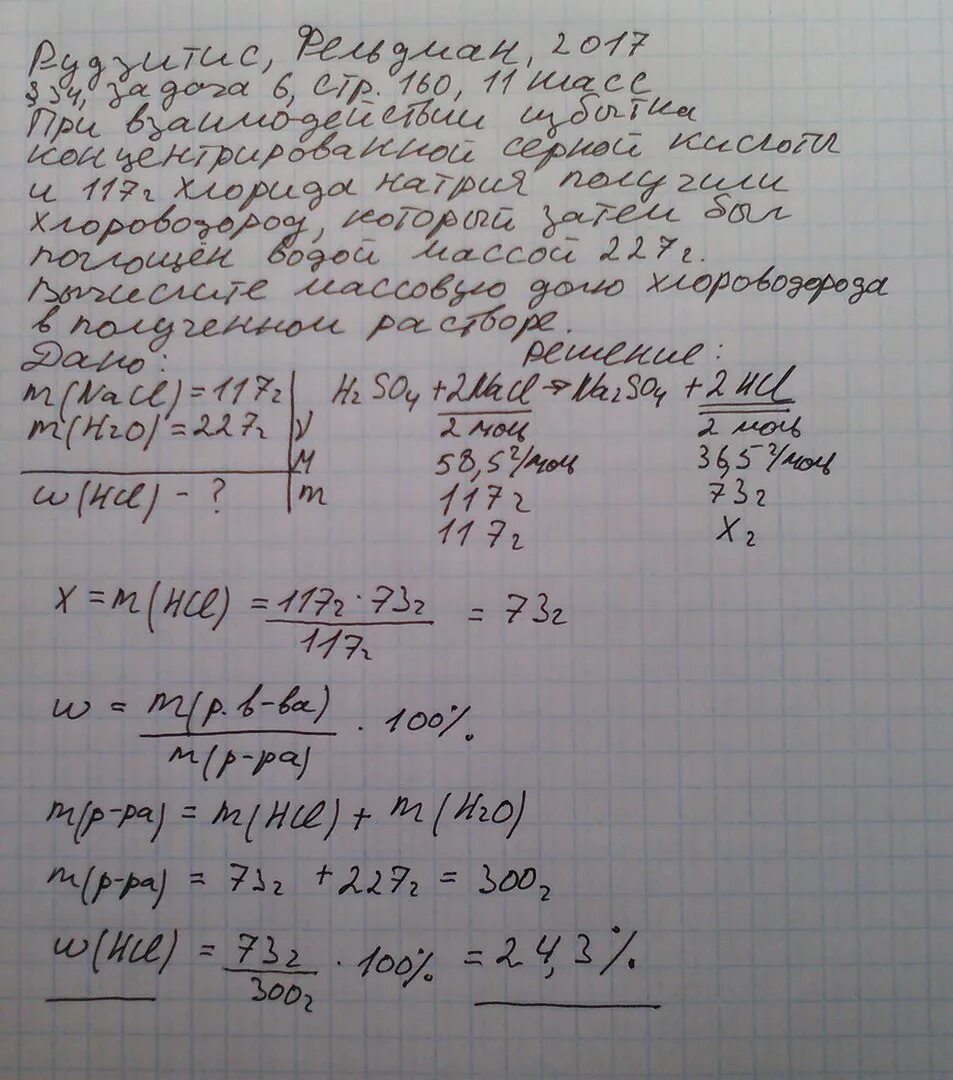 Рудзитис, Фельдман, 2017
§ 34, задача 6, стр. 160, 11 класс
При взаимодействии избытка
концентрированной серной кислоты
и 117г хлорида натрия получили
хлороводород, который затем был
поглощён водой массой 227г.
Вычислите массовую долю хлороводорода
в полученном растворе.
Дано: Решение:
m(NaCl) = 117г H₂SO₄ + 2NaCl → Na₂SO₄ + 2HCl
m(H₂O) = 227г ν 2 моль 2 моль
M 58,5 г/моль 36,5 г/моль
w(HCl) - ? m 117г 73г
117г Xг
X = m(HCl) = 117г · 73г / 117г = 73г
w = m(р.в-ва) / m(р-ра) · 100%
m(р-ра) = m(HCl) + m(H₂O)
m(р-ра) = 73г + 227г = 300г
w(HCl) = 73г / 300г · 100% = 24,3%